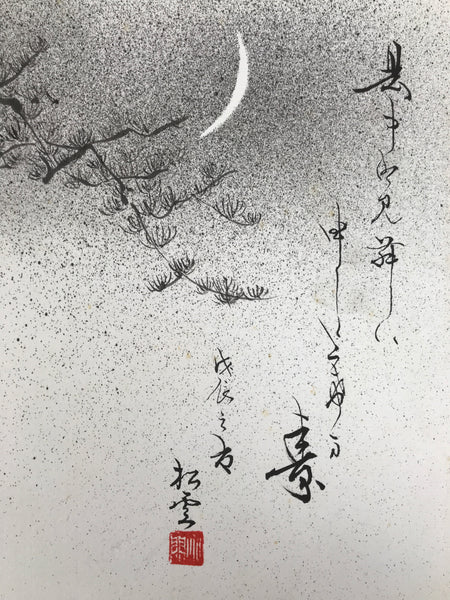 暑中お見舞い
申し上げま
素
戊辰之夏
松雲